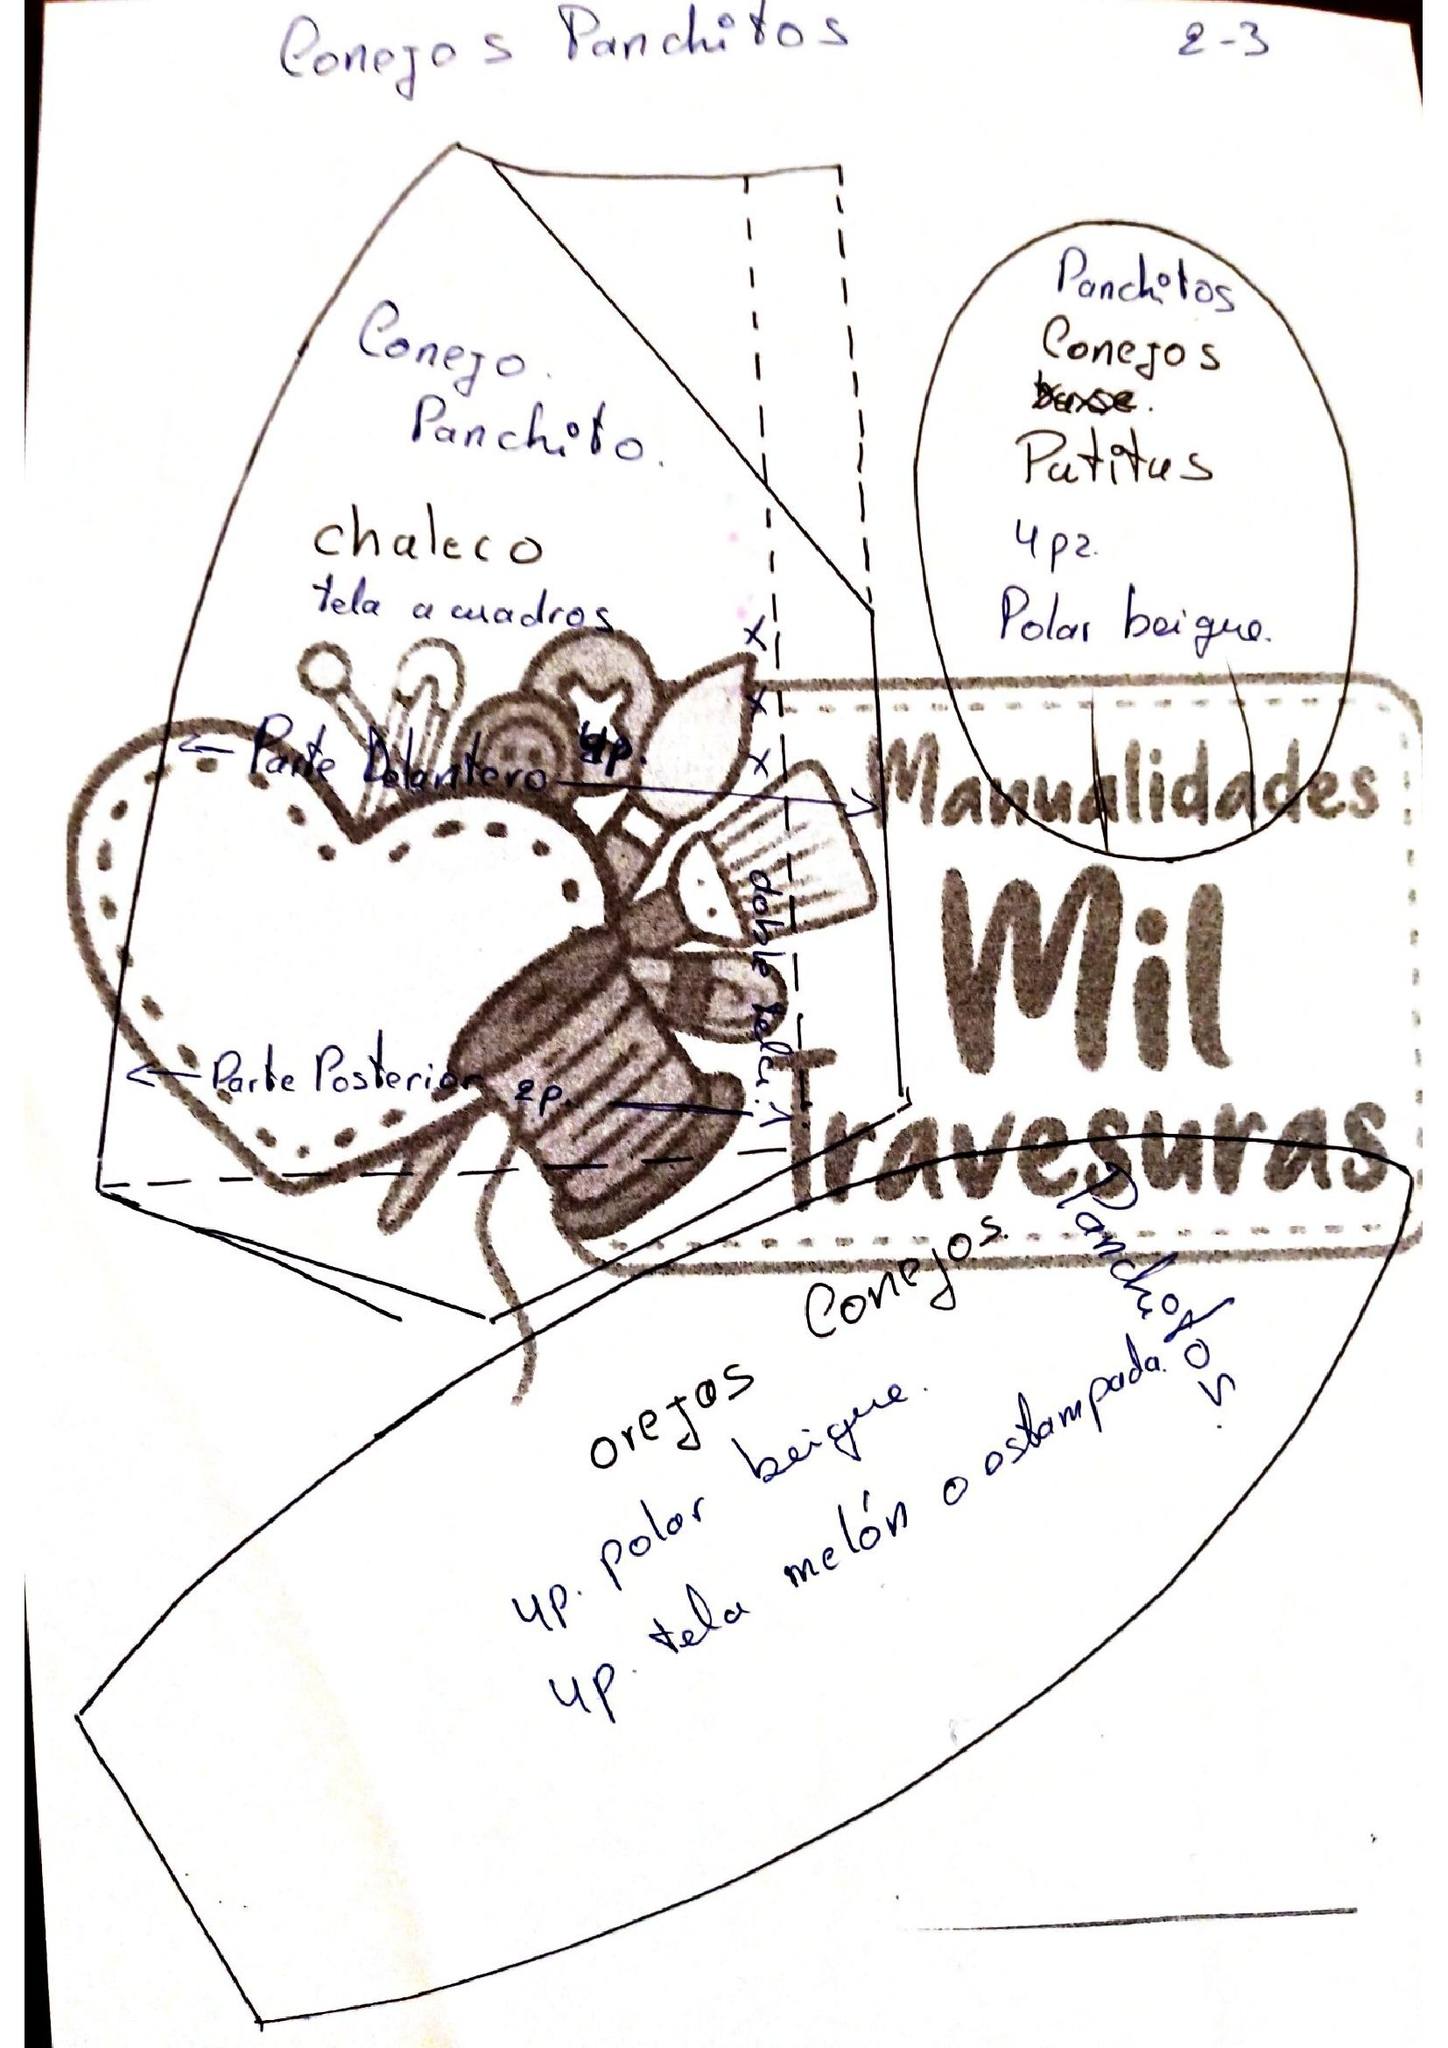 Conejos Panchitos
2-3
Conejo.
Panchito.
chaleco
tela a cuadros
← Parte Delantero 4p.
← Parte Posterior 2p.
doble tela.
x
x
x
Panchitos
Conejos
Patitas
4 pz.
Polar beigue.
Manualidades
Mil
Travesuras
orejas Conejos
Panchitos.
4p. polar beigue.
4p. tela melón o estampada.